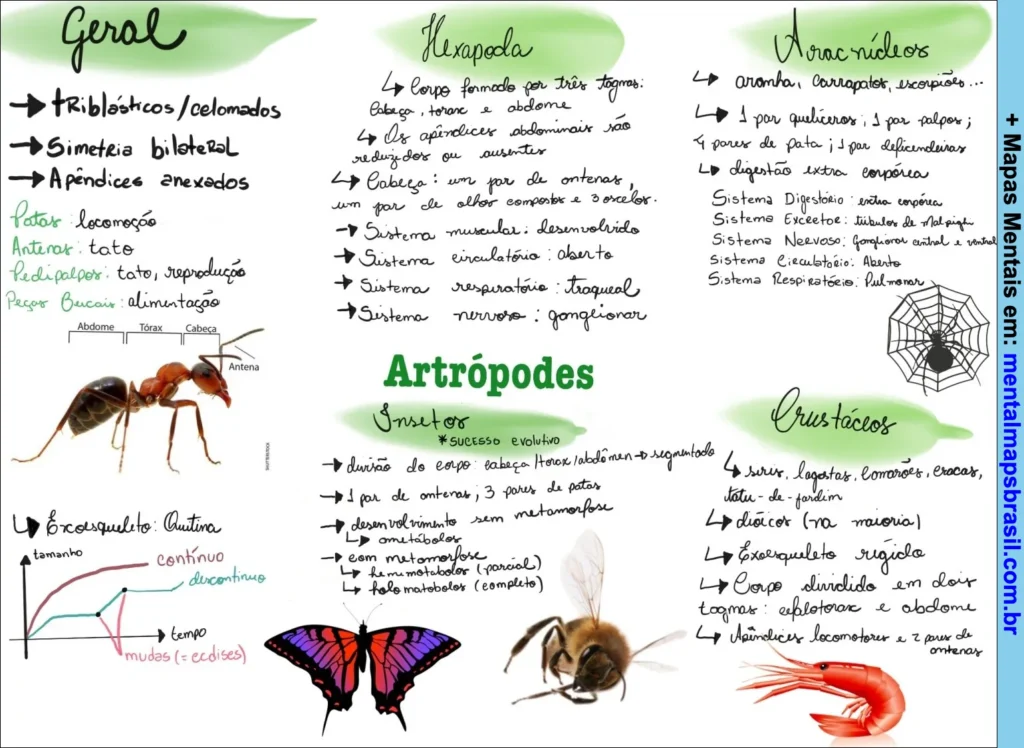 Geral
→ triblásticos/celomados
→ Simetria bilateral
→ Apêndices anexados
Patas: locomoção
Antenas: tato
Pedipalpos: tato, reprodução
Peças Bucais: alimentação
Abdome Tórax Cabeça
Antena
↳ Exoesqueleto: Quitina
tamanho
contínuo
descontinuo
tempo
mudas (= ecdises)
Hexapoda
↳ Corpo formado por três tagmas:
Cabeça, torax e abdome
↳ Os apêndices abdominais são
reduzidos ou ausentes
↳ Cabeça: um par de antenas,
um par de olhos compostos e 3 oscelos.
→ Sistema muscular: desenvolvido
→ Sistema circulatório: aberto
→ Sistema respiratório: traqueal
→ Sistema nervoso: ganglionar
Artrópodes
Insetos
*SUCESSO EVOLUTIVO
→ divisão do corpo: cabeça/torax/abdômen → segmentado
→ 1 par de antenas; 3 pares de patas
→ desenvolvimento sem metamorfose
↳ ametábolos
→ com metamorfose
↳ hemimetabolos (parcial)
↳ holo matobolos (completo)
Aracnídeos
↳ aranha, carrapatos, escorpiões...
↳ 1 par quelíceros; 1 par palpos;
4 pares de pata; 1 par
↳ digestão extra corpórea
Sistema Digestório: extra corpórea
Sistema Excretor: túbulos de Malpighi
Sistema Nervoso: Ganglionar central e ventral
Sistema Circulatório: Aberto
Sistema Respiratório: Pulmonar
Crustáceos
↳ siris, lagostas, camarões, cracas,
tatu-de-jardim
↳ dióicos (na maioria)
↳ Exoesqueleto rígido
↳ Corpo dividido em dois
tagmas: cefalotorax e abdome
↳ Apêndices locomotores e 2 pares de
antenas
+ Mapas Mentais em: mentalmapsbrasil.com.br